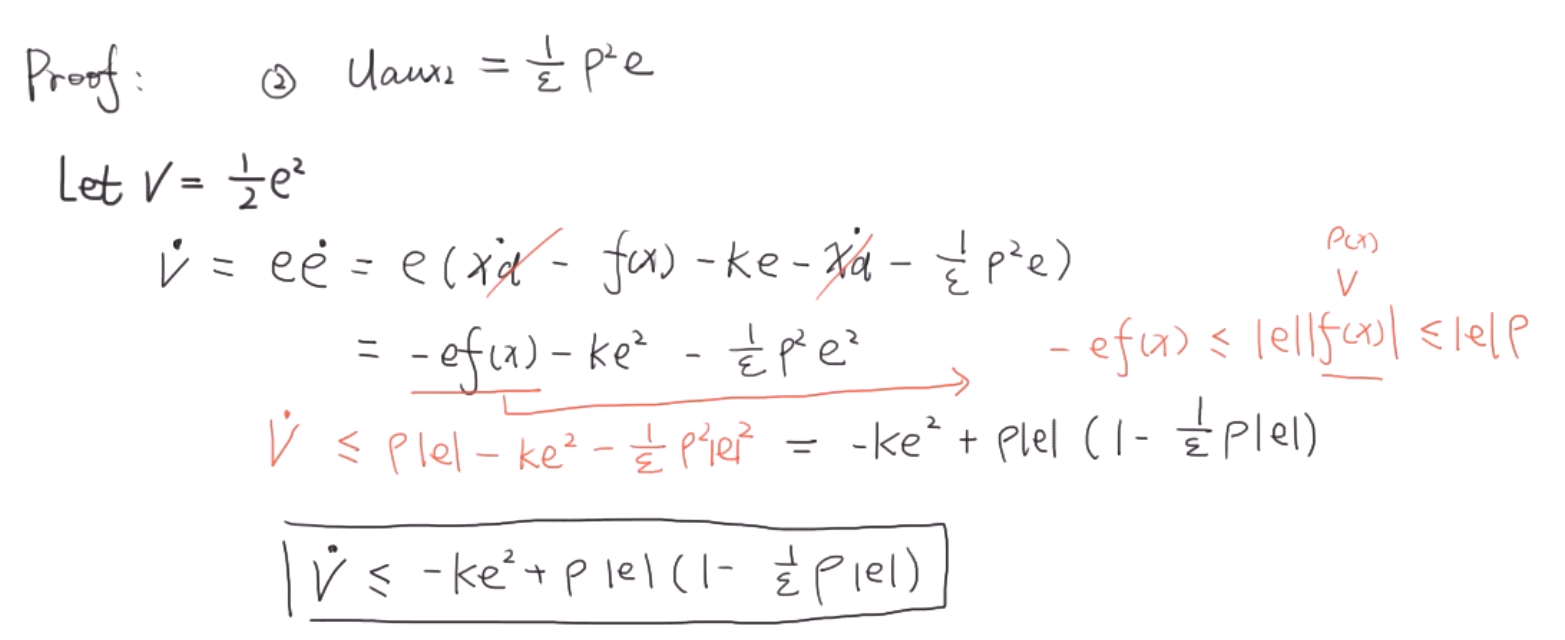 Proof: ② Uaux₂ = 1/ε ρ²e
Let V = 1/2 e²
V̇ = eė = e(ẋd - f(x) - ke - ẋd - 1/ε ρ²e)
ρ(x)
V
= -ef(x) - ke² - 1/ε ρ²e²
- ef(x) ≤ |e||f(x)| ≤ |e|ρ
V̇ ≤ ρ|e| - ke² - 1/ε ρ²|e|² = -ke² + ρ|e| (1 - 1/ε ρ|e|)
V̇ ≤ -ke² + ρ|e| (1 - 1/ε ρ|e|)